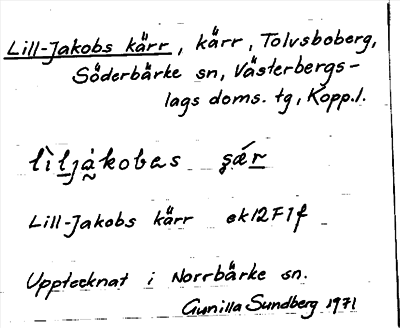 Lill-Jakobs kärr, kärr, Tolvsboberg,
Söderbärke sn, Västerbergs-
lags doms. tg, Kopp.l.
lìljàkobas şǽr
Lill-Jakobs kärr ek12F1f
Upptecknat i Norrbärke sn.
Gunilla Sundberg 1971